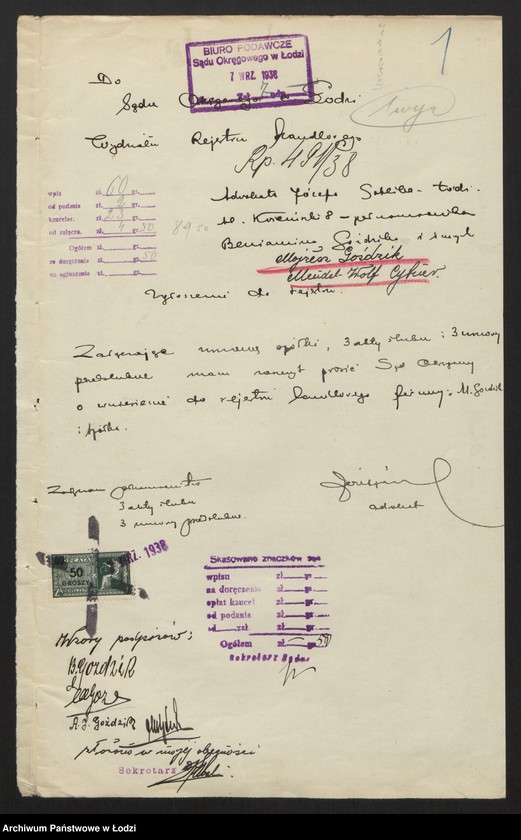 1
BIURO PODAWCZE
Sądu Okręgowego w Łodzi
7 WRZ. 1938
Zał.
Do
Sądu Okręgowego w Łodzi
Wydziału Rejestru Handlowego
Rp. 491/38
wpis zł. 60 gr.
od podania zł. gr.
kancelar. zł. gr.
od załącz. zł. 4 gr. 50
Ogółem zł. gr.
za doręczenie zł. gr. 50
na ogłoszenie zł. gr.
89 50
Adwokata Józefa
8 – pełnomocnika
Beniamina Goździka i innych
Mojżesz Goździk
Mendel Wolf
Zgłoszenie do rejestru.
Załączając umowę spółki, 3 akty ślubu i 3 umowy
przedślubne mam zaszczyt prosić Sąd Okręgowy
o wniesienie do rejestru handlowego firmy: M. Goździk
i spółka.
3 akty ślubu
3 umowy przedślubne.
adwokat
WRZ. 1938
50
GROSZY
Skasowano znaczków
wpisu zł. gr.
na doręczenie zł. gr.
opłat kancel zł. gr.
od podania zł. gr.
od zał. zł. gr.
Ogółem zł. – gr. 50
Sekretarz Sądu
Wzory podpisów:
B. GOŹDZIK
A. J. Goździk
złożono w mojej obecności
Sekretarz
Archiwum Państwowe w Łodzi